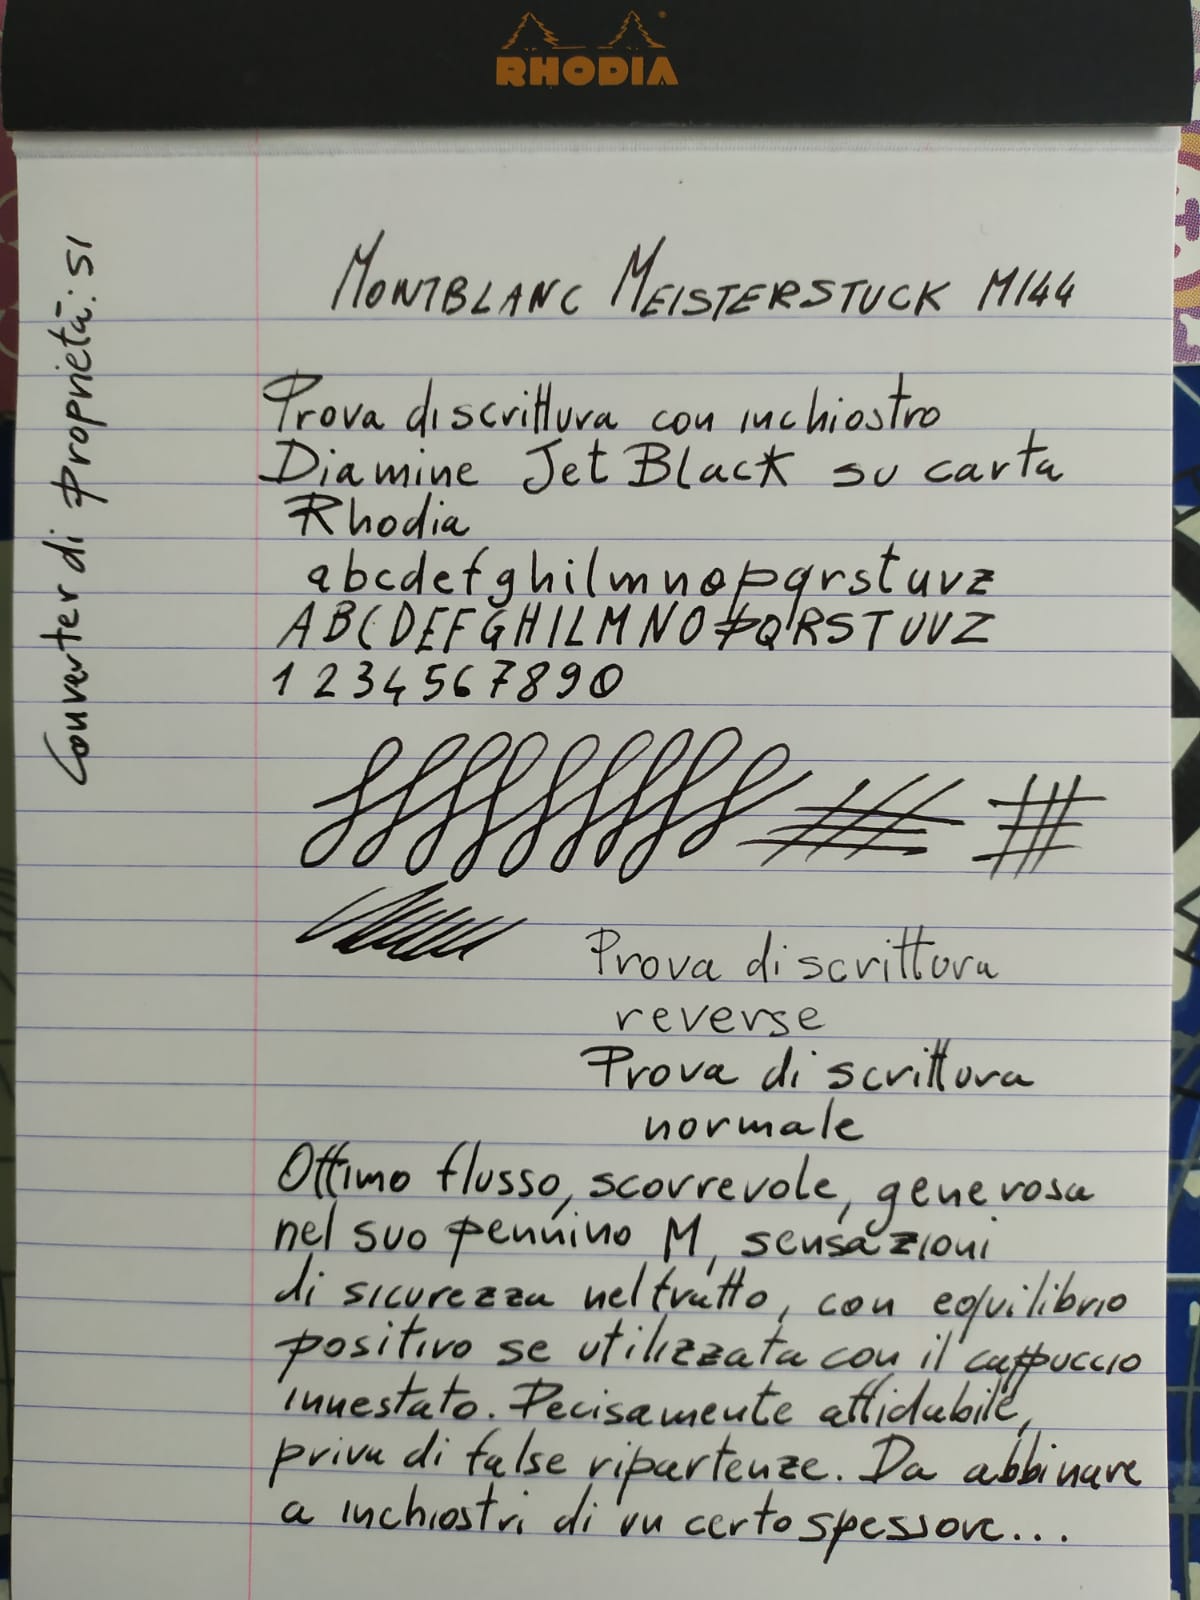 RHODIA
MONTBLANC MEISTERSTUCK M144
Converter di proprietà: SI
Prova di scrittura con inchiostro
Diamine Jet Black su carta
Rhodia
abcdefghilmnopqrstuvz
ABCDEFGHILMNOPQRSTUVZ
1234567890
Prova di scrittura
reverse
Prova di scrittura
normale
Ottimo flusso, scorrevole, generosa
nel suo pennino M, sensazioni
di sicurezza nel tratto, con equilibrio
positivo se utilizzata con il cappuccio
innestato. Decisamente affidabile,
priva di false ripartenze. Da abbinare
a inchiostri di un certo spessore...